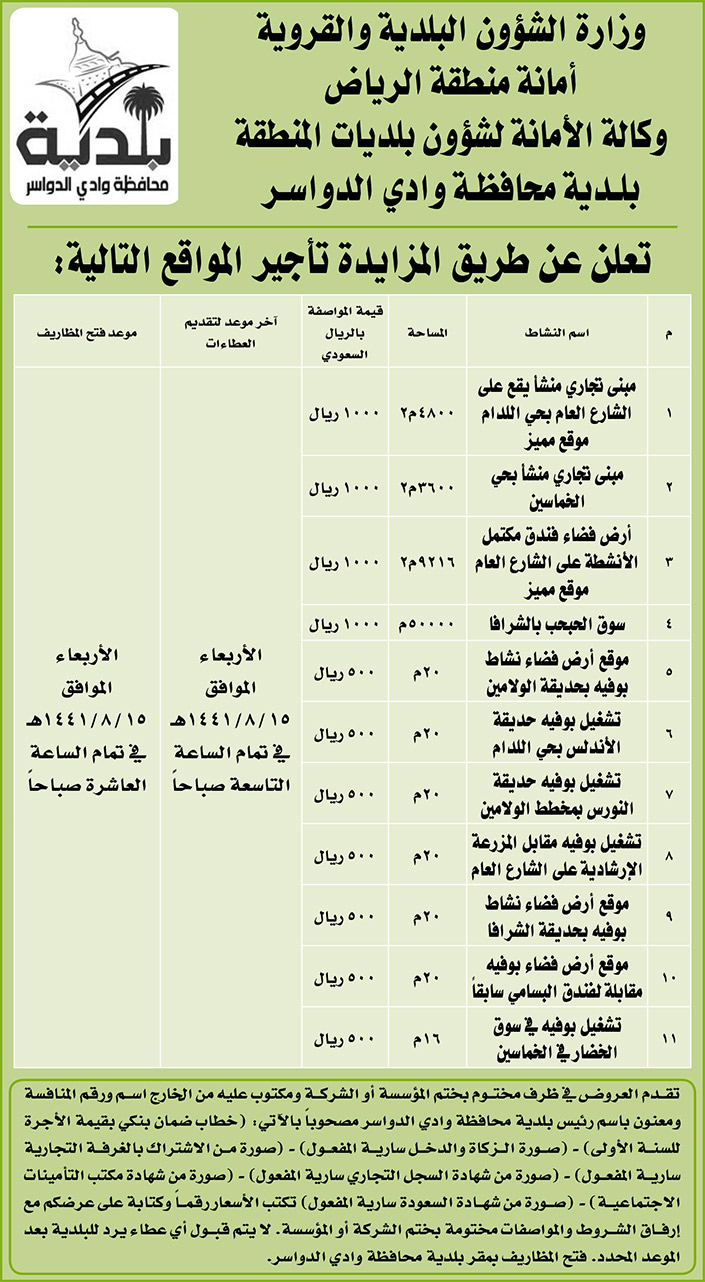 وزارة الشؤون البلدية والقروية
أمانة منطقة الرياض
وكالة الأمانة لشؤون بلديات المنطقة
بلدية محافظة وادي الدواسر
بلدية
محافظة وادي الدواسر
تعلن عن طريق المزايدة تأجير المواقع التالية:
م | اسم النشاط | المساحة | قيمة المواصفة بالريال السعودي | آخر موعد لتقديم العطاءات | موعد فتح المظاريف
١ | مبنى تجاري منشأ يقع على الشارع العام بحي اللدام موقع مميز | ٤٨٠٠م٢ | ١٠٠٠ ريال
٢ | مبنى تجاري منشأ بحي الخماسين | ٣٦٠٠م٢ | ١٠٠٠ ريال
٣ | أرض فضاء فندق مكتمل الأنشطة على الشارع العام موقع مميز | ٩٢١٦م٢ | ١٠٠٠ ريال
٤ | سوق الحبحب بالشرافا | ٥٠٠٠٠م | ١٠٠٠ ريال
٥ | موقع أرض فضاء نشاط بوفيه بحديقة الولامين | ٢٠م | ٥٠٠ ريال
٦ | تشغيل بوفيه حديقة الأندلس بحي اللدام | ٢٠م | ٥٠٠ ريال
٧ | تشغيل بوفيه حديقة النورس بمخطط الولامين | ٢٠م | ٥٠٠ ريال
٨ | تشغيل بوفيه مقابل المزرعة الإرشادية على الشارع العام | ٢٠م | ٥٠٠ ريال
٩ | موقع أرض فضاء نشاط بوفيه بحديقة الشرافا | ٢٠م | ٥٠٠ ريال
١٠ | موقع أرض فضاء بوفيه مقابلة لفندق البسامي سابقاً | ٢٠م | ٥٠٠ ريال
١١ | تشغيل بوفيه في سوق الخضار في الخماسين | ١٦م | ٥٠٠ ريال
الأربعاء
الموافق
١٤٤١/٨/١٥هـ
في تمام الساعة
التاسعة صباحاً
الأربعاء
الموافق
١٤٤١/٨/١٥هـ
في تمام الساعة
العاشرة صباحاً
تقدم العروض في ظرف مختوم بختم المؤسسة أو الشركة ومكتوب عليه من الخارج اسم ورقم المنافسة
ومعنون باسم رئيس بلدية محافظة وادي الدواسر مصحوباً بالآتي: (خطاب ضمان بنكي بقيمة الأجرة
للسنة الأولى) - (صورة الزكاة والدخل سارية المفعول) - (صورة من الاشتراك بالغرفة التجارية
سارية المفعول) - (صورة من شهادة السجل التجاري سارية المفعول) - (صورة من شهادة مكتب التأمينات
الاجتماعية) - (صورة من شهادة السعودة سارية المفعول) تكتب الأسعار رقماً وكتابة على عرضكم مع
إرفاق الشروط والمواصفات مختومة بختم الشركة أو المؤسسة. لا يتم قبول أي عطاء يرد للبلدية بعد
الموعد المحدد. فتح المظاريف بمقر بلدية محافظة وادي الدواسر.